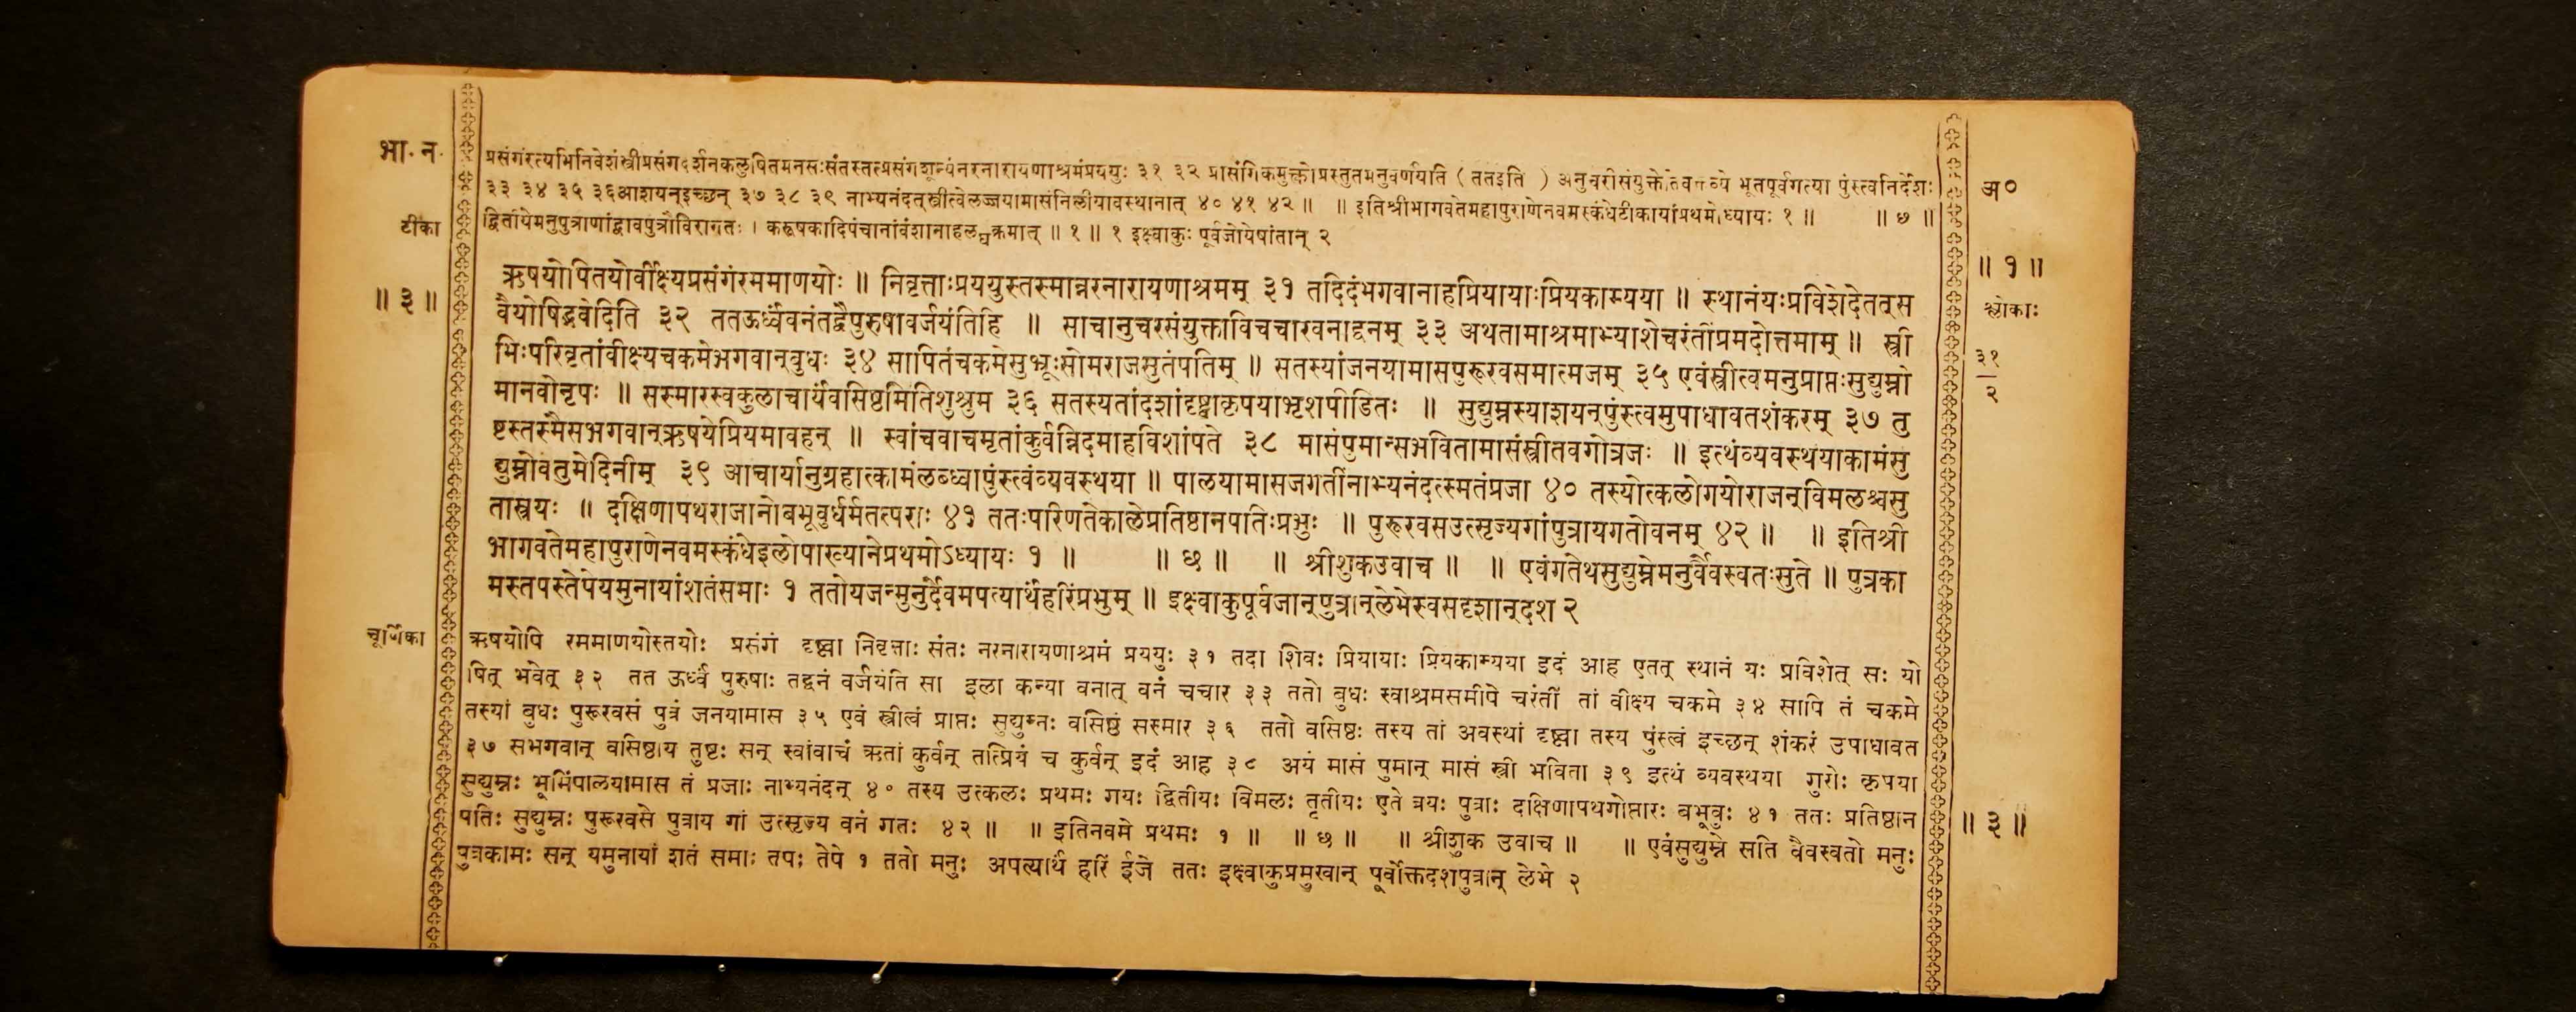 भा. न.
प्रसंगंरत्यभिनिवेशंस्त्रीप्रसंगदर्शनकलुषितमनसःसंतस्तत्प्रसंगशून्यंनरनारायणाश्रमंप्रययुः ३१ ३२ प्रासंगिकमुक्त्वाप्रस्तुतमनुवर्णयति ( ततइति ) अनुचरीसंयुक्तेतिवक्तव्ये भूतपूर्वगत्या पुंस्त्वनिर्देशः
अ०
३३ ३४ ३५ ३६आशयन्इच्छन् ३७ ३८ ३९ नाभ्यनंदत्स्त्रीत्वेलज्जयामासंनिलीयावस्थानात् ४० ४१ ४२ ॥ ॥ इतिश्रीभागवतेमहापुराणेनवमस्कंधेटीकायांप्रथमोध्यायः १ ॥ ॥ ७ ॥
टीका
द्वितीयेमनुपुत्राणांद्वावपुत्रौविरागतः । करूषकादिपंचानांवंशानाहलघुक्रमात् ॥ १ ॥ १ इक्ष्वाकुः पूर्वजोयेषांतान् २
॥ १ ॥
॥ ३ ॥
ऋषयोपितयोर्वीक्ष्यप्रसंगंरममाणयोः ॥ निवृत्ताःप्रययुस्तस्मान्नरनारायणाश्रमम् ३१ तदिदंभगवानाहप्रियायाःप्रियकाम्यया ॥ स्थानंयःप्रविशेदेतत्स
श्लोकाः
वैयोषिद्भवेदिति ३२ ततऊर्ध्वंवनंतद्वैपुरुषावर्जयंतिहि ॥ साचानुचरसंयुक्ताविचचारवनाद्वनम् ३३ अथतामाश्रमाभ्याशेचरंतींप्रमदोत्तमाम् ॥ स्त्री
३१
२
भिःपरिवृतांवीक्ष्यचकमेभगवान्बुधः ३४ सापितंचकमेसुभ्रूःसोमराजसुतंपतिम् ॥ सतस्यांजनयामासपुरूरवसमात्मजम् ३५ एवंस्त्रीत्वमनुप्राप्तःसुद्युम्नो
मानवोनृपः ॥ सस्मारस्वकुलाचार्यंवसिष्ठमितिशुश्रुम ३६ सतस्यतांदशांदृष्ट्वाकृपयाभृशपीडितः ॥ सुद्युम्नस्याशयन्पुंस्त्वमुपाधावतशंकरम् ३७ तु
ष्टस्तस्मैसभगवान्ऋषयेप्रियमावहन् ॥ स्वांचवाचमृतांकुर्वन्निदमाहविशांपते ३८ मासंपुमान्सभवितामासंस्त्रीतवगोत्रजः ॥ इत्थंव्यवस्थयाकामंसु
द्युम्नोवतुमेदिनीम् ३९ आचार्यानुग्रहात्कामंलब्ध्वापुंस्त्वंव्यवस्थया ॥ पालयामासजगतींनाभ्यनंदत्स्मतंप्रजा ४० तस्योत्कलोगयोराजन्विमलश्चसु
तास्त्रयः ॥ दक्षिणापथराजानोबभूवुर्धर्मतत्पराः ४१ ततःपरिणतेकालेप्रतिष्ठानपतिःप्रभुः ॥ पुरूरवसउत्सृज्यगांपुत्रायगतोवनम् ४२ ॥ ॥ इतिश्री
भागवतेमहापुराणेनवमस्कंधेइलोपाख्यानेप्रथमोऽध्यायः १ ॥ ॥ छ ॥ ॥ श्रीशुकउवाच ॥ ॥ एवंगतेथसुद्युम्नेमनुर्वैवस्वतःसुते ॥ पुत्रका
मस्तपस्तेपेयमुनायांशतंसमाः १ ततोयजन्मुनुर्देवमपत्यार्थंहरिंप्रभुम् ॥ इक्ष्वाकुपूर्वजान्पुत्रान्लेभेस्वसदृशान्दश २
चूर्णिका
ऋषयोपि रममाणयोस्तयोः प्रसंगं दृष्ट्वा निवृत्ताः संतः नरनारायणाश्रमं प्रययुः ३१ तदा शिवः प्रियायाः प्रियकाम्यया इदं आह एतत् स्थानं यः प्रविशेत् सः यो
षित् भवेत् ३२ तत ऊर्ध्वं पुरुषाः तद्वनं वर्जयंति सा इला कन्या वनात् वनं चचार ३३ ततो बुधः स्वाश्रमसमीपे चरंतीं तां वीक्ष्य चकमे ३४ सापि तं चकमे
तस्यां बुधः पुरूरवसं पुत्रं जनयामास ३५ एवं स्त्रीत्वं प्राप्तः सुद्युम्नः वसिष्ठं सस्मार ३६ ततो वसिष्ठः तस्य तां अवस्थां दृष्ट्वा तस्य पुंस्त्वं इच्छन् शंकरं उपाधावत
३७ सभगवान् वसिष्ठाय तुष्टः सन् स्वांवाचं ऋतां कुर्वन् तत्प्रियं च कुर्वन् इदं आह ३८ अयं मासं पुमान् मासं स्त्री भविता ३९ इत्थं व्यवस्थया गुरोः कृपया
सुद्युम्नः भूमिंपालयामास तं प्रजाः नाभ्यनंदन् ४० तस्य उत्कलः प्रथमः गयः द्वितीयः विमलः तृतीयः एते त्रयः पुत्राः दक्षिणापथगोप्तारः बभूवुः ४१ ततः प्रतिष्ठान
॥ ३ ॥
पतिः सुद्युम्नः पुरूरवसे पुत्राय गां उत्सृज्य वनं गतः ४२ ॥ ॥ इतिनवमे प्रथमः १ ॥ ॥ छ ॥ ॥ श्रीशुक उवाच ॥ ॥ एवंसुद्युम्ने सति वैवस्वतो मनुः
पुत्रकामः सन् यमुनायां शतं समाः तपः तेपे १ ततो मनुः अपत्यार्थं हरिं ईजे ततः इक्ष्वाकुप्रमुखान् पूर्वोक्तदशपुत्रान् लेभे २